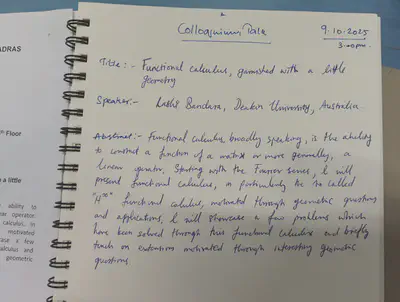 Colloquium Talk
9.10.2025
3.00pm.
Title:- Functional calculus, garnished with a little
geometry
Speaker:- Lashi Bandara, Deakin University, Australia.
Abstract:- Functional calculus, broadly speaking, is the ability
to construct a function of a matrix or more generally, a
linear operator. Starting with the Fourier series, I will
present functional calculus, in particularly the so called
"H∞" functional calculus, motivated through geometric questions
and applications. I will showcase a few problems which
have been solved through this functional calculus and briefly
touch on extensions motivated through interesting geometric
questions.
ADRAS
th Floor
h a little
ability to
ear operator.
calculus, in
motivated
case a few
calculus and
geometric